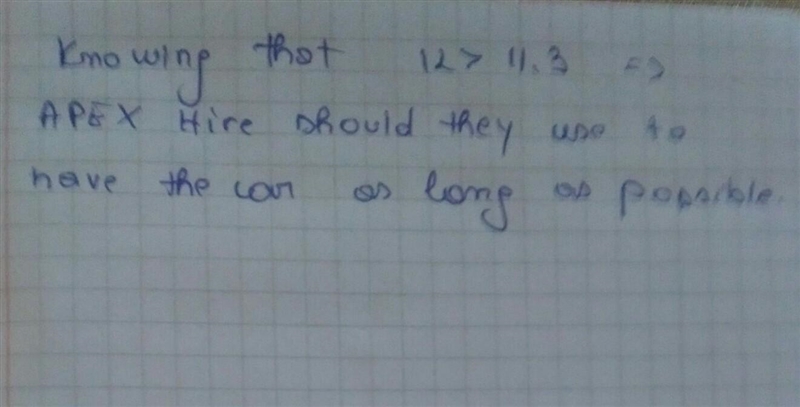 Knowing that 12 > 11.3 =>
APEX Hire should they use to
have the car as long as possible.